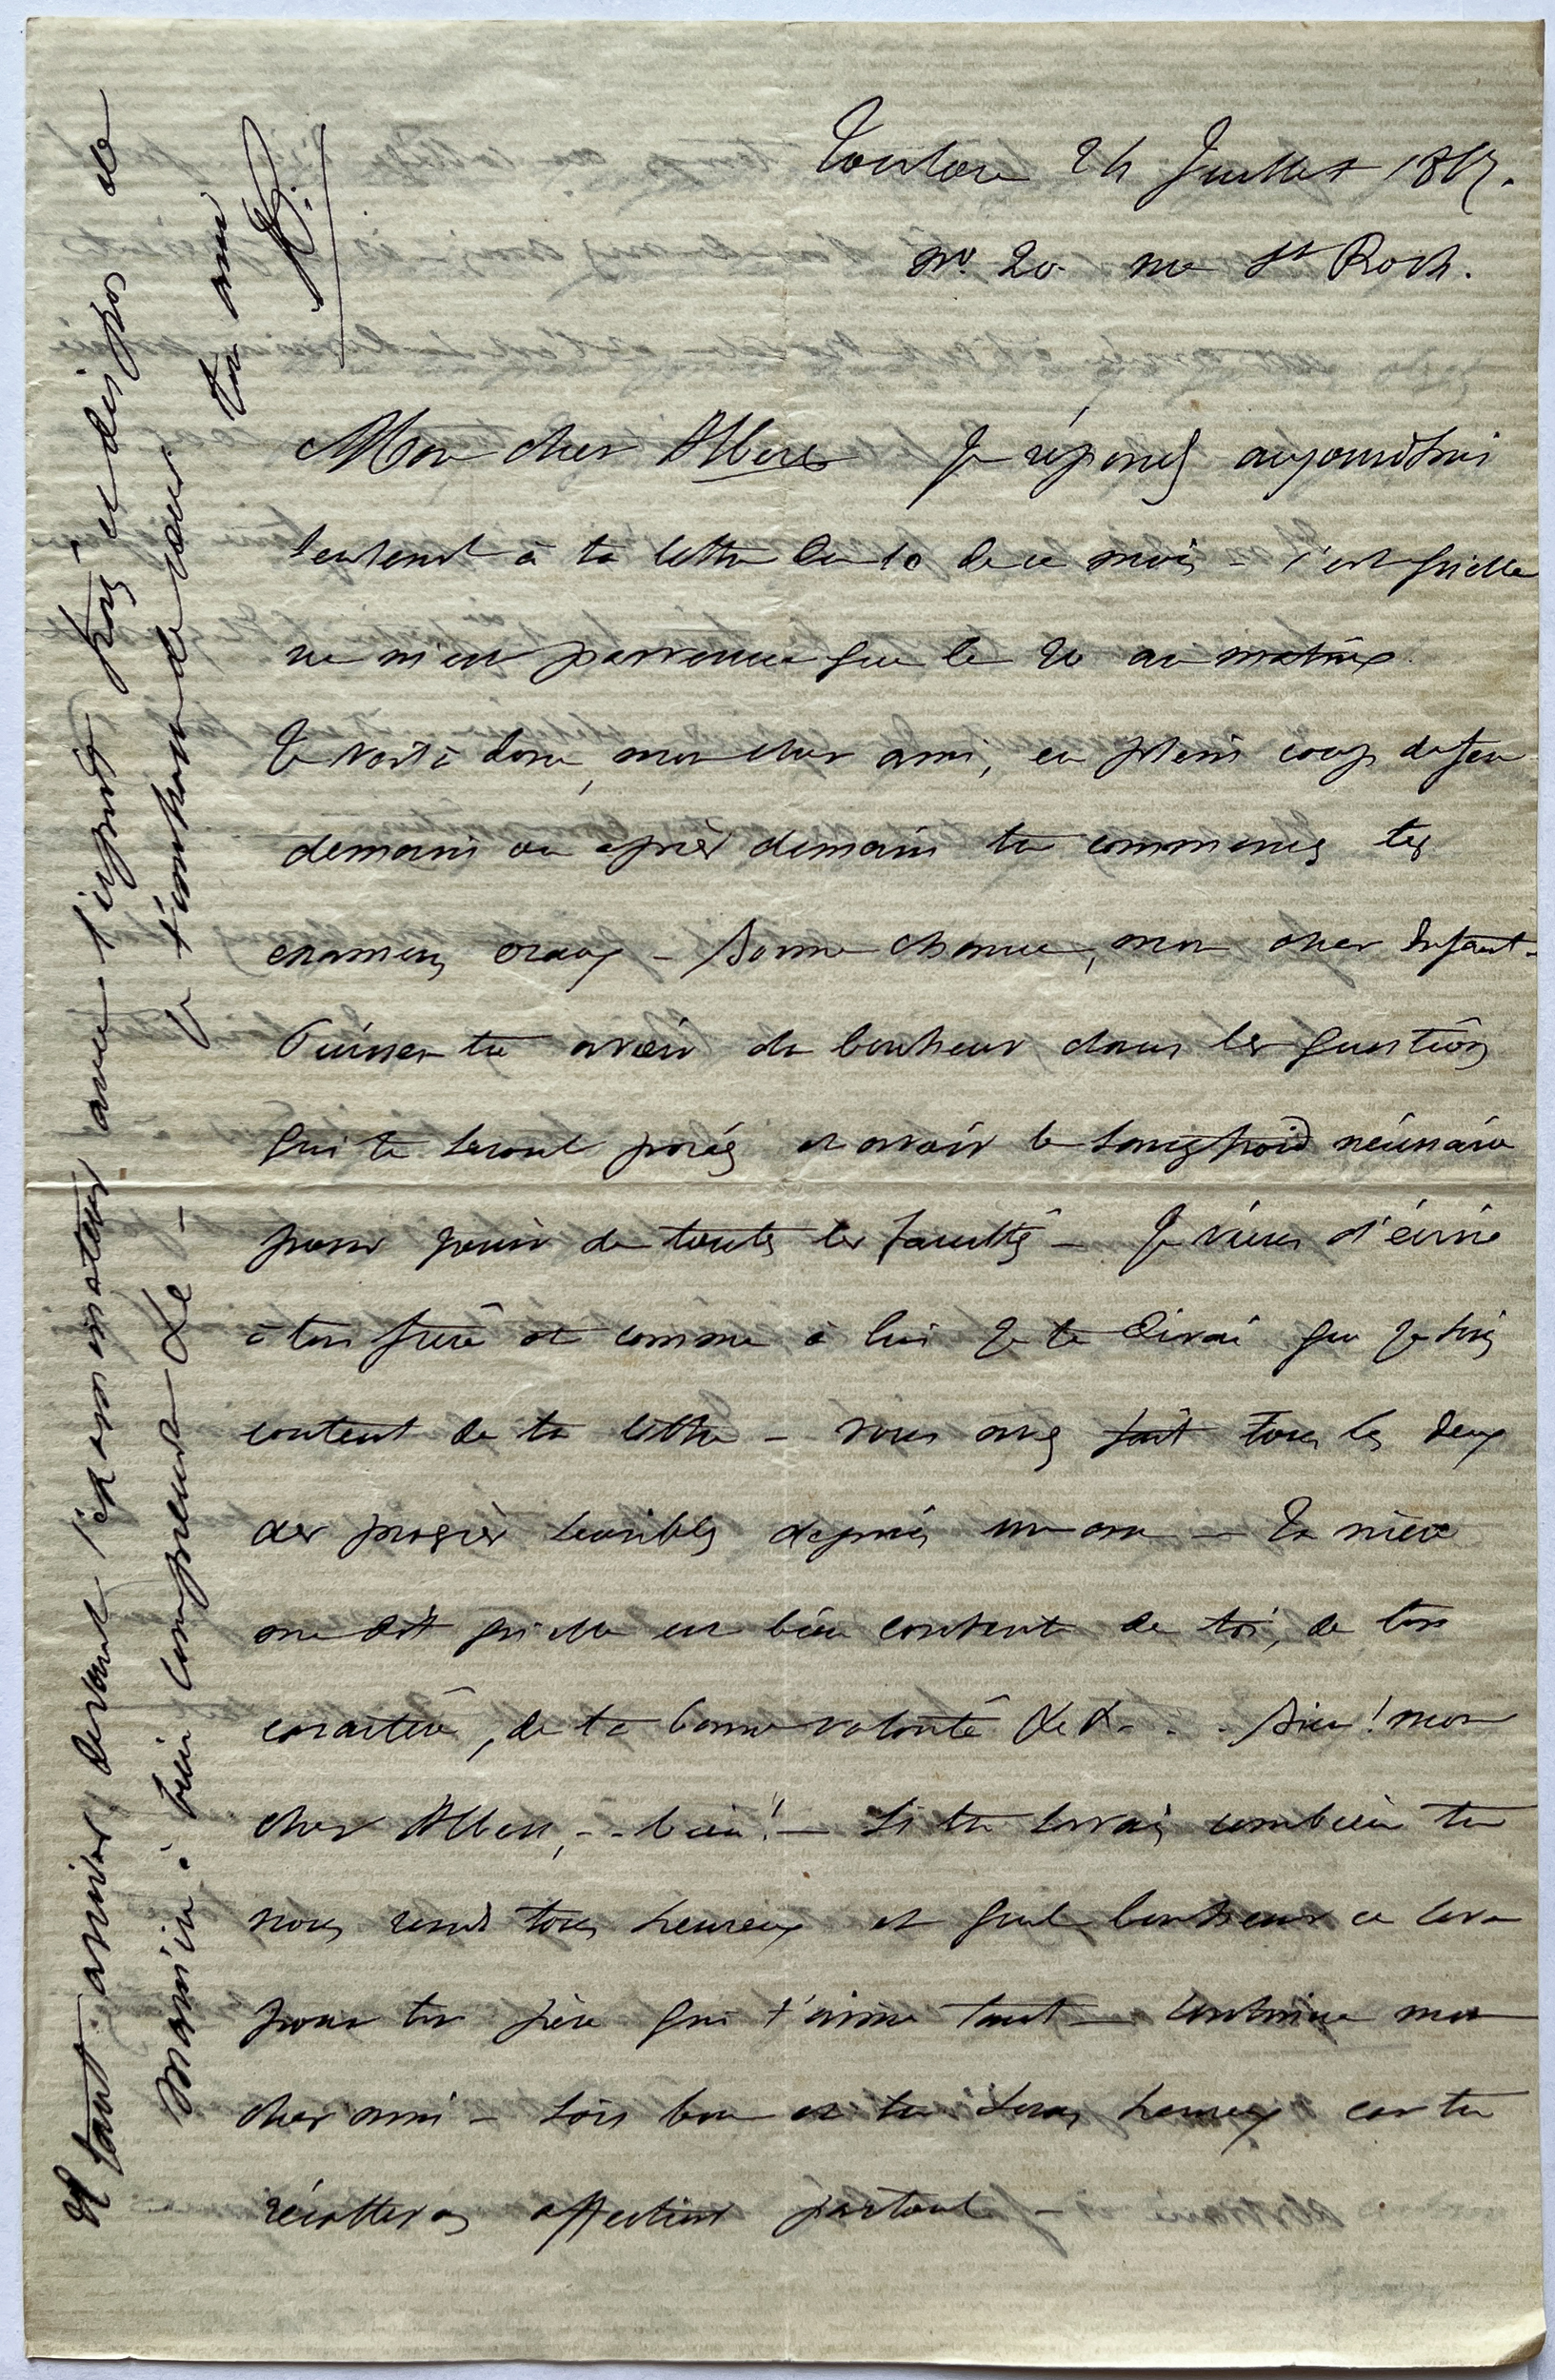 24 Juillet
no. 20. rue St Roch.
Mon cher Albert Je réponds aujourd'hui
seulement à ta lettre du 10 de ce mois - c'est qu'elle
ne m'est parvenue que le 20 au matin.
Te voilà donc, mon cher ami, en plein coup de feu
demain ou après demain tu commences tes
examens oraux - Bonne chance, mon cher Enfant -
Puisses tu avoir du bonheur dans les questions
qui te seront posées et avoir le sangfroid nécessaire
pour jouir de toutes les facultés - Je viens d'écrire
à ton frère et comme à lui je te dirai que je suis
content de ta lettre - vous avez fait tous les deux
des progrès sensibles depuis un an - Ta mère
me dit qu'elle est bien contente de toi, de ton
caractère, de ta bonne volonté &c &. . . Bien! mon
cher Albert, - - bien! - Si tu savais combien tu
nous rends tous heureux et quel bonheur ce sera
pour ton père qui t'aime tant - Continue mon
cher ami - sois bon et tu seras heureux car tu
récolteras affection partout -
Il faut arriver devant l'examinateur avec l'esprit frais et dispos de
manière à bien comprendre &c -
Je t'embrasse de cœur.
ton ami